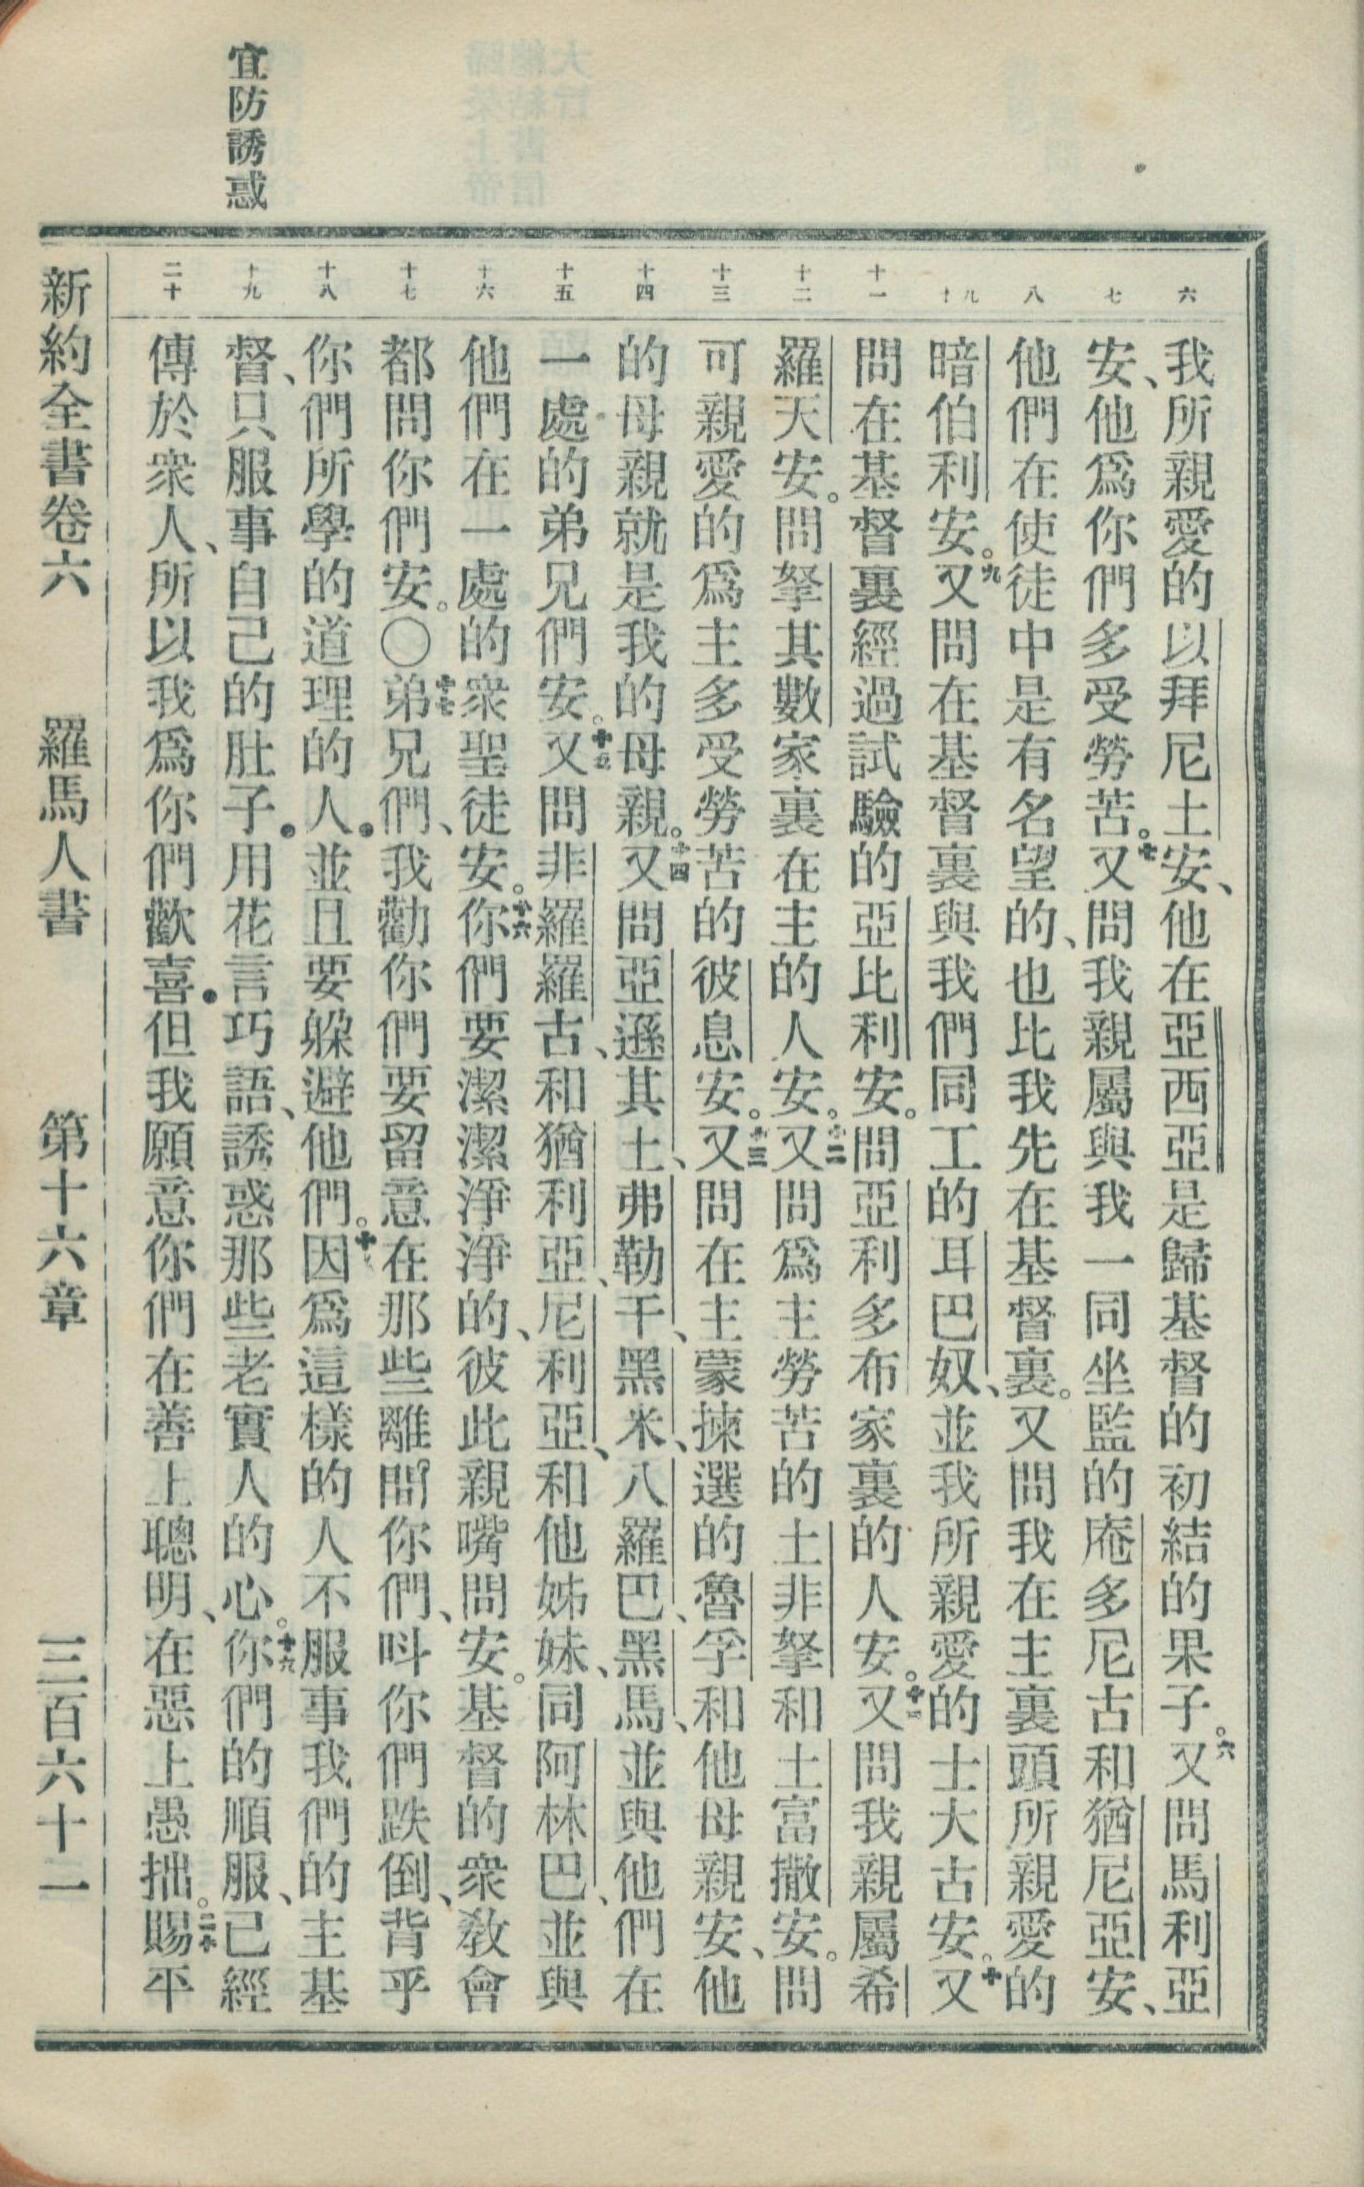 宜防誘惑
六 七 八 九 十 十一 十二 十三 十四 十五 十六 十七 十八 十九 二十
我所親愛的以拜尼土安、他在亞西亞是歸基督的初結的果子。六又問馬利亞
安、他爲你們多受勞苦。七又問我親屬與我一同坐監的庵多尼古和猶尼亞安、
他們在使徒中是有名望的、也比我先在基督裏。又問我在主裏頭所親愛的
暗伯利安。九又問在基督裏與我們同工的耳巴奴、並我所親愛的士大古安。十又
問在基督裏經過試驗的亞比利安。問亞利多布家裏的人安。十一又問我親屬希
羅天安。問拏其數家裏在主的人安。十二又問爲主勞苦的土非拏和土富撒安。問
可親愛的爲主多受勞苦的彼息安。十三又問在主蒙揀選的魯孚和他母親安、他
的母親就是我的母親。十四又問亞遜其土、弗勒干、黑米、八羅巴、黑馬、並與他們在
一處的弟兄們安。十五又問非羅羅古、和猶利亞、尼利亞、和他姊妹、同阿林巴、並與
他們在一處的衆聖徒安。十六你們要潔潔淨淨的、彼此親嘴問安。基督的衆教會
都問你們安。〇十七弟兄們、我勸你們要留意在那些離間你們、呌你們跌倒、背乎
你們所學的道理的人.並且要躲避他們。十八因爲這樣的人不服事我們的主基
督、只服事自己的肚子.用花言巧語、誘惑那些老實人的心。十九你們的順服、已經
傳於衆人、所以我爲你們歡喜.但我願意你們在善上聰明、在惡上愚拙。二十賜平
新約全書卷六 羅馬人書 第十六章 三百六十二